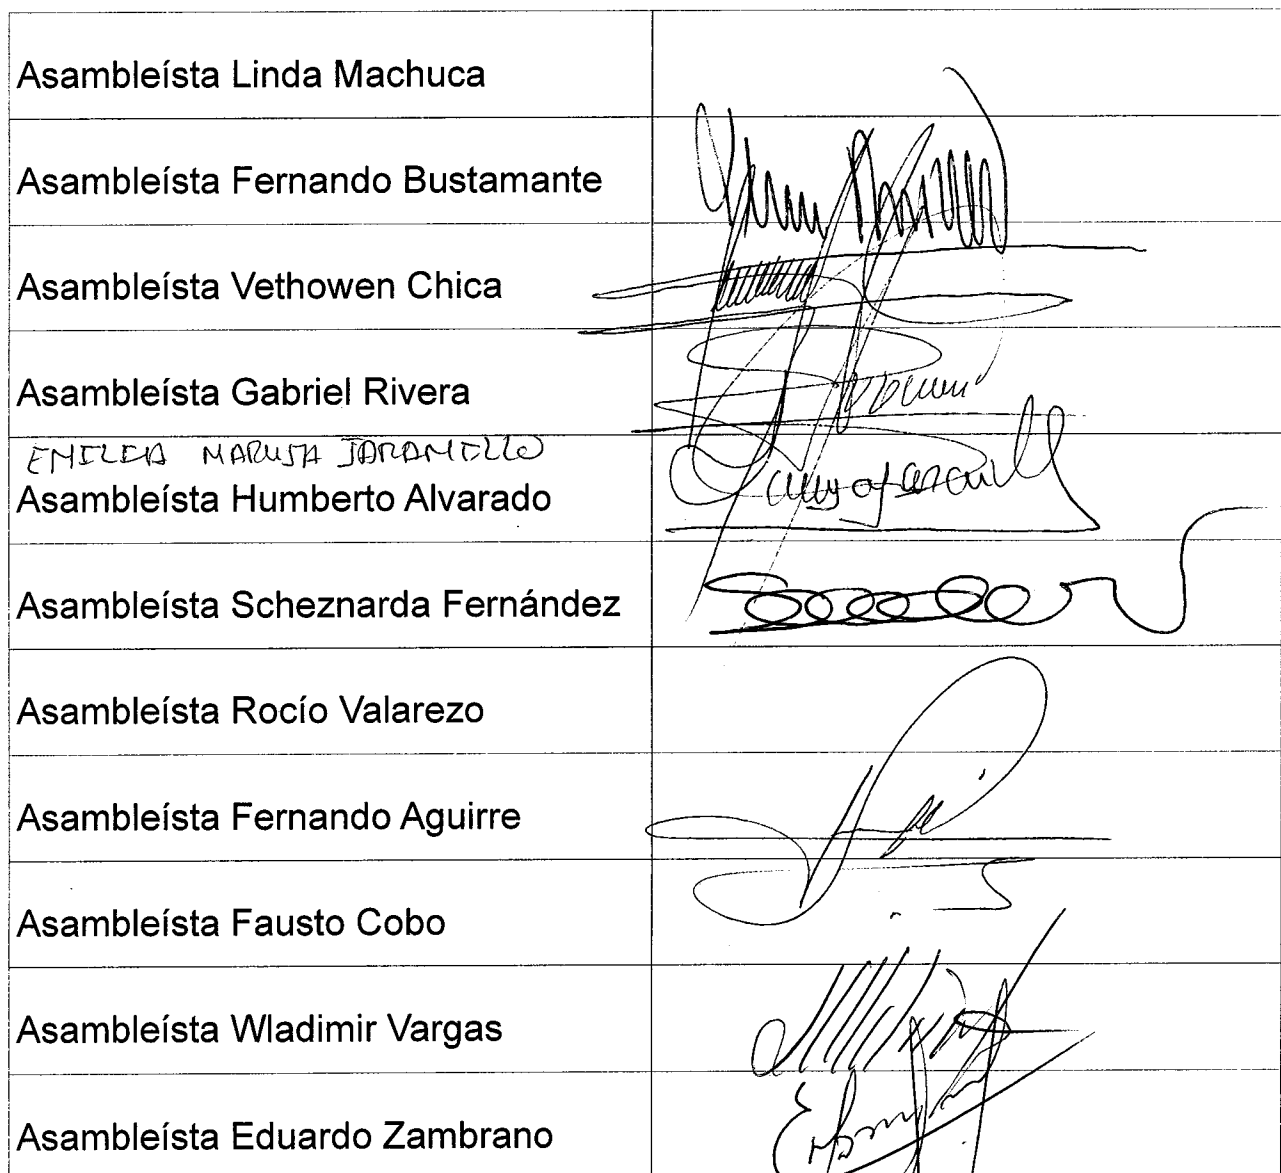 Asambleísta Linda Machuca
Asambleísta Fernando Bustamante
Asambleísta Vethowen Chica
Asambleísta Gabriel Rivera
EMILIA MARUJA JARAMILLO
Asambleísta Humberto Alvarado
Asambleísta Scheznarda Fernández
Asambleísta Rocío Valarezo
Asambleísta Fernando Aguirre
Asambleísta Fausto Cobo
Asambleísta Wladimir Vargas
Asambleísta Eduardo Zambrano